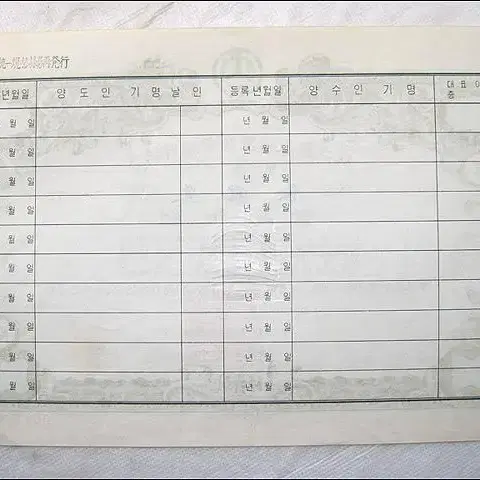 発行
년월일 양도인 기명날인 등록년월일 양수인 기명 대표이
월 일 년 월 일
월 일 년 월 일
월 일 년 월 일
월 일 년 월 일
월 일 년 월 일
월 일 년 월 일
월 일 년 월 일
월 일 년 월 일
월 일 년 월 일
월 일 년 월 일